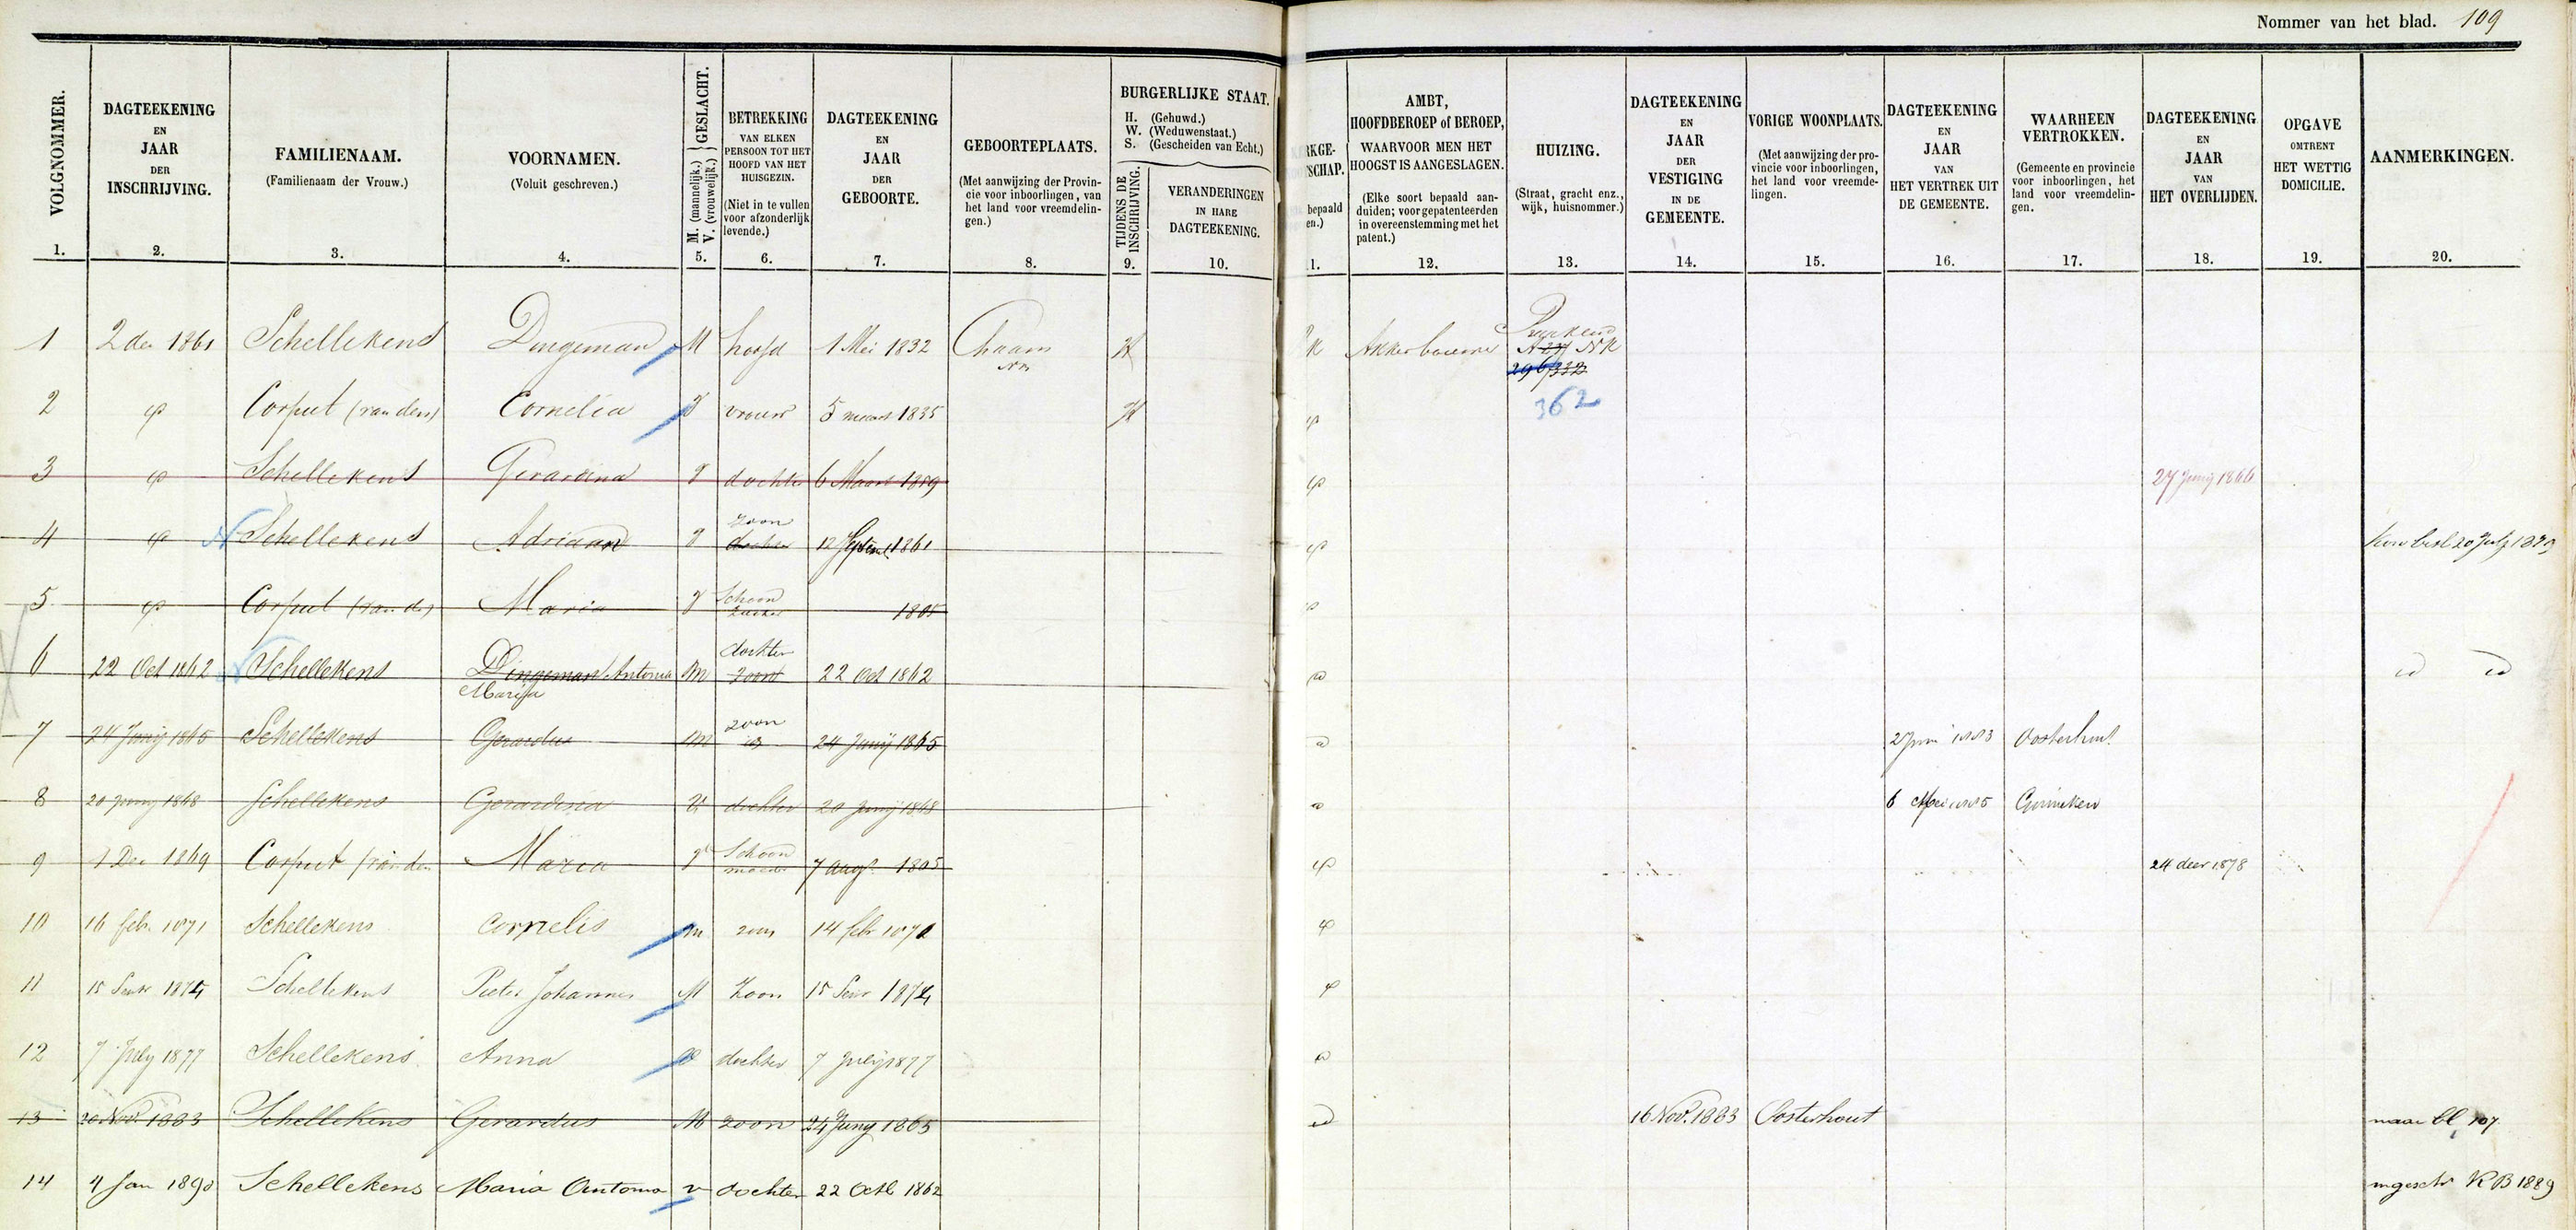 Nommer van het blad. 109
VOLGNOMMER.
1.
DAGTEEKENING
EN
JAAR
DER
INSCHRIJVING.
2.
FAMILIENAAM.
(Familienaam der Vrouw.)
3.
VOORNAMEN.
(Voluit geschreven.)
4.
GESLACHT.
M. (mannelijk.)
V. (vrouwelijk.)
5.
BETREKKING
VAN ELKEN
PERSOON TOT HET
HOOFD VAN HET
HUISGEZIN.
(Niet in te vullen
voor afzonderlijk
levende.)
6.
DAGTEEKENING
EN
JAAR
DER
GEBOORTE.
7.
GEBOORTEPLAATS.
(Met aanwijzing der Provin-
cie voor inboorlingen, van
het land voor vreemdelin-
gen.)
8.
BURGERLIJKE STAAT.
H. (Gehuwd.)
W. (Weduwenstaat.)
S. (Gescheiden van Echt.)
TIJDENS DE
INSCHRIJVING.
9.
VERANDERINGEN
IN HARE
DAGTEEKENING.
10.
RKGE-
TSCHAP.
bepaald
en.)
1.
AMBT,
HOOFDBEROEP of BEROEP,
WAARVOOR MEN HET
HOOGST IS AANGESLAGEN.
(Elke soort bepaald aan-
duiden; voor gepatenteerden
in overeenstemming met het
patent.)
12.
HUIZING.
(Straat, gracht enz.,
wijk, huisnommer.)
13.
DAGTEEKENING
EN
JAAR
DER
VESTIGING
IN DE
GEMEENTE.
14.
VORIGE WOONPLAATS.
(Met aanwijzing der pro-
vincie voor inboorlingen,
het land voor vreemde-
lingen.
15.
DAGTEEKENING
EN
JAAR
VAN
HET VERTREK UIT
DE GEMEENTE.
16.
WAARHEEN
VERTROKKEN.
(Gemeente en provincie
voor inboorlingen, het
land voor vreemdelin-
gen.
17.
DAGTEEKENING
EN
JAAR
VAN
HET OVERLIJDEN.
18.
OPGAVE
OMTRENT
HET WETTIG
DOMICILIE.
19.
AANMERKINGEN.
20.
1 2 dec 1861 Schellekens Dingeman M hoofd 1 Mei 1832 Chaam H Akkerbouwer
362
2 Corput (van den) Cornelia V vrouw 5 maart 1835 H
3 Schellekens Gerardina V dochter 6 Maart 1859 27 Junij 1866
4 Schellekens Adriaan V zoon dochter 12 Septem 1861
5 Corput (van de) Maria V Schoon 1805
6 22 Oct 1862 Schellekens Dingeman Antonia Maria m dochter zoon 22 Oct 1862
7 24 Junij 1865 Schellekens Gerardus m zoon 24 Junij 1865 Oosterhout
8 20 Junij 1868 Schellekens Gerardina V dochter 20 Junij 1868 6 Mei 1885 Ginneken
9 1 Dec 1869 Corput (van den Maria V Schoon moeder 7 augs 1805 24 decr 1878
10 16 febr. 1871 Schellekens Cornelis m zoon 14 febr 1871
11 15 1874 Schellekens Pieter Johannes M Zoon 15 1874
12 7 July 1877 Schellekens Anna V dochter 7 Julij 1877
13 20 Nov. 1883 Schellekens Gerardus M zoon 24 Juny 1865 16 Nov. 1883 Oosterhout naar bl. 107
14 4 Jan 1890 Schellekens Maria Antonia v dochter 22 Octb 1862 ingeschr KB 1889